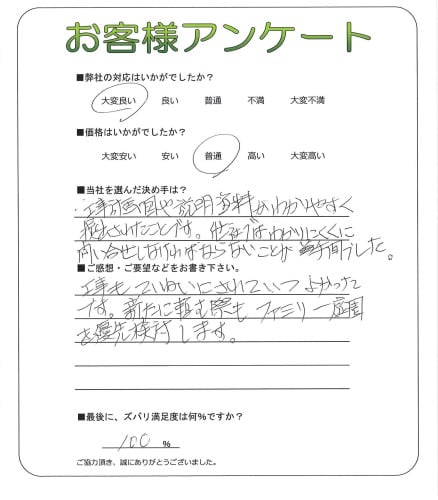 お客様アンケート
■弊社の対応はいかがでしたか？
大変良い 良い 普通 不満 大変不満
■価格はいかがでしたか？
大変安い 安い 普通 高い 大変高い
■当社を選んだ決め手は？
工事計画図や説明資料がわかりやすく
提出されたことです。他社ではわかりにくくに
問い合せしなければならないことが 手間でした。
■ご感想・ご要望などをお書き下さい。
工事も ていねいにされていて よかった
です。新たに頼む際も ファミリー庭園
を優先検討します。
■最後に、ズバリ満足度は何％ですか？
100 ％
ご協力頂き、誠にありがとうございました。